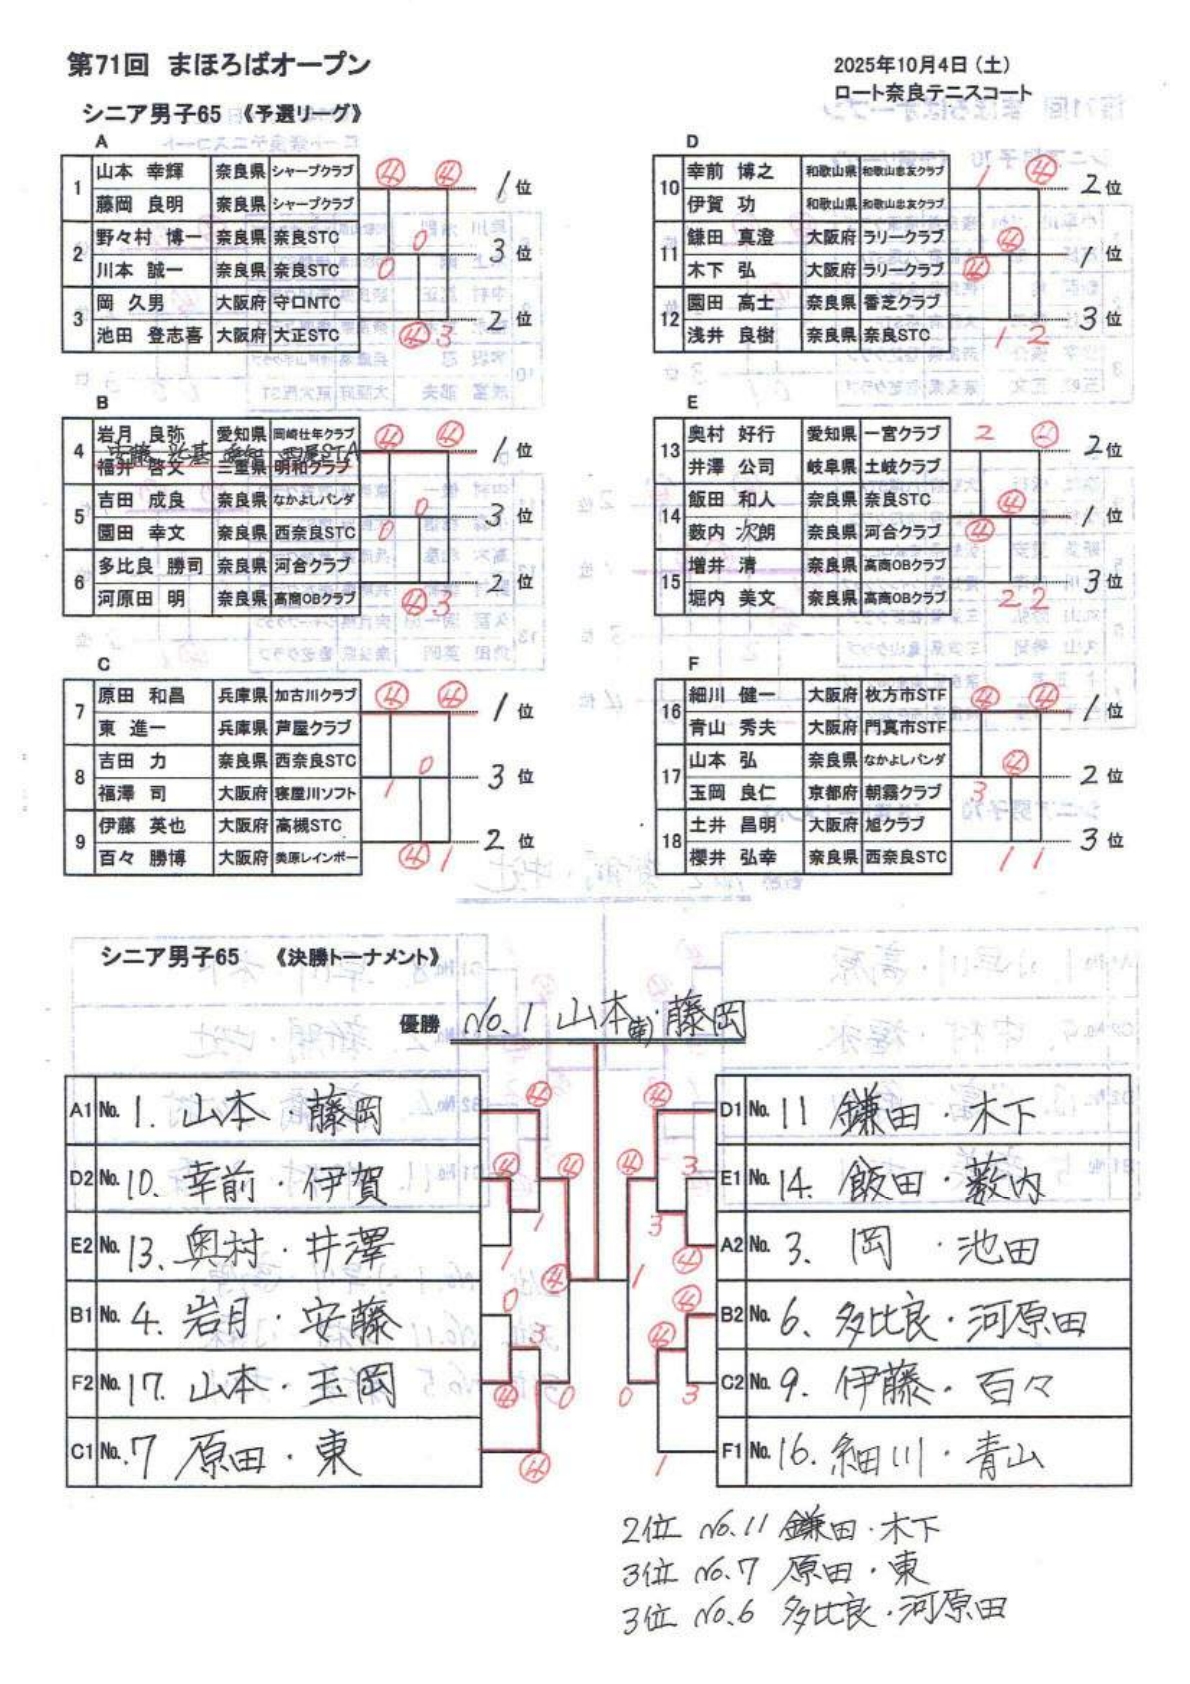 第71回 まほろばオープン
2025年10月4日（土）
ロート奈良テニスコート
シニア男子65 《予選リーグ》
A
1 山本 幸輝 奈良県 シャープクラブ ④ ④ 1位
藤岡 良明 奈良県 シャープクラブ
2 野々村 博一 奈良県 奈良STC 0 3位
川本 誠一 奈良県 奈良STC 0
3 岡 久男 大阪府 守口NTC 2位
池田 登志喜 大阪府 大正STC ④ 3
B
4 岩月 良弥 愛知県 岡崎壮年クラブ ④ ④ 1位
安藤 愛知 西尾STA
福井 啓文 三重県 明和クラブ
5 吉田 成良 奈良県 なかよしパンダ 0 3位
園田 幸文 奈良県 西奈良STC 0
6 多比良 勝司 奈良県 河合クラブ 2位
河原田 明 奈良県 高商OBクラブ ④ 3
C
7 原田 和昌 兵庫県 加古川クラブ ④ ④ 1位
東 進一 兵庫県 芦屋クラブ
8 吉田 力 奈良県 西奈良STC 0 3位
福澤 司 大阪府 寝屋川ソフト 1
9 伊藤 英也 大阪府 高槻STC 2位
百々 勝博 大阪府 美原レインボー ④ 1
D
10 幸前 博之 和歌山県 和歌山忠友クラブ 1 ④ 2位
伊賀 功 和歌山県 和歌山忠友クラブ
11 鎌田 真澄 大阪府 ラリークラブ ④ 1位
木下 弘 大阪府 ラリークラブ ④
12 園田 高士 奈良県 香芝クラブ 3位
浅井 良樹 奈良県 奈良STC 1 2
E
13 奥村 好行 愛知県 一宮クラブ 2 ④ 2位
井澤 公司 岐阜県 土岐クラブ
14 飯田 和人 奈良県 奈良STC ④ 1位
藪内 次朗 奈良県 河合クラブ ④
15 増井 清 奈良県 高商OBクラブ 3位
堀内 美文 奈良県 高商OBクラブ 2 2
F
16 細川 健一 大阪府 枚方市STF ④ ④ 1位
青山 秀夫 大阪府 門真市STF
17 山本 弘 奈良県 なかよしパンダ ④ 2位
玉岡 良仁 京都府 朝霧クラブ 3
18 土井 昌明 大阪府 旭クラブ 3位
櫻井 弘幸 奈良県 西奈良STC 1 1
シニア男子65 《決勝トーナメント》
優勝 No.1 山本(幸)・藤岡
A1 No. 1. 山本・藤岡 ④
D2 No. 10. 幸前・伊賀 ④ ④
1
E2 No. 13. 奥村・井澤 1
④
B1 No. 4. 岩月・安藤 0
3
F2 No. 17. 山本・玉岡 ④ 0
C1 No. 7 原田・東 ④
④ D1 No. 11 鎌田・木下
④ 3 E1 No. 14. 飯田・藪内
3
④ A2 No. 3. 岡・池田
1
④ B2 No. 6. 多比良・河原田
④
0 3 C2 No. 9. 伊藤・百々
1 F1 No. 16. 細川・青山
2位 No.11 鎌田・木下
3位 No.7 原田・東
3位 No.6 多比良・河原田